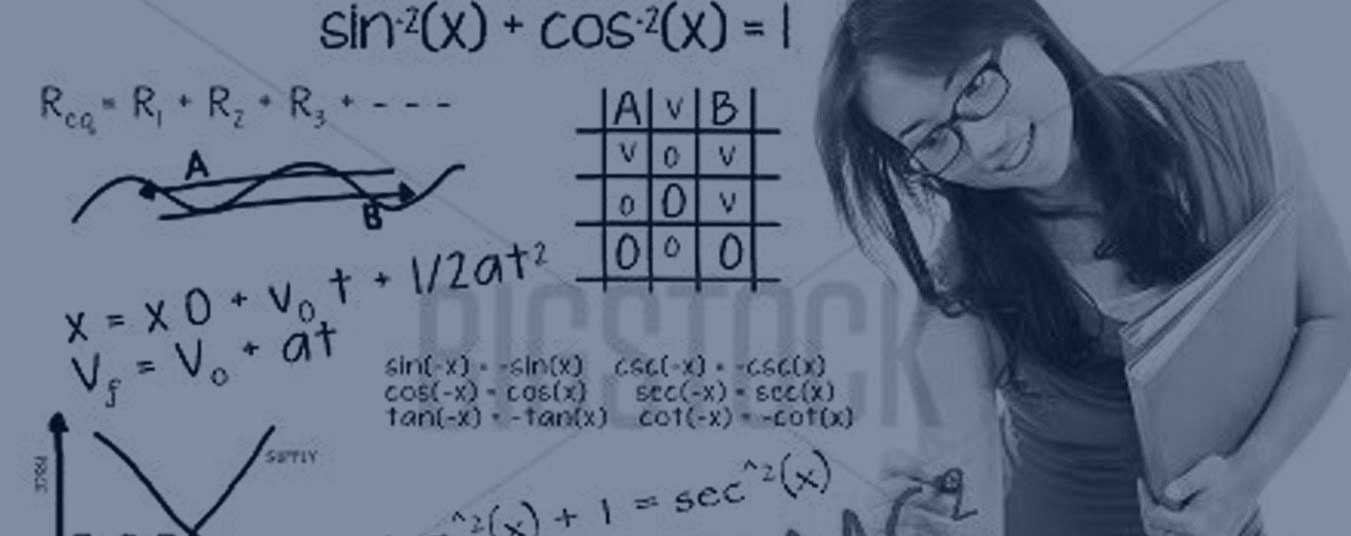 sin^-2(x) + cos^-2(x) = 1
R_eq = R_1 + R_2 + R_3 + - - -
A | v | B
v | o | v
o | O | v
O | o | O
A
B
x = x 0 + v_0 t + 1/2at^2
v_f = v_0 + at
BIGSTOCK
sin(-x) = -sin(x) csc(-x) = -csc(x)
cos(-x) = cos(x) sec(-x) = sec(x)
tan(-x) = -tan(x) cot(-x) = -cot(x)
SUPPLY
^2(x) + 1 = sec^2(x)